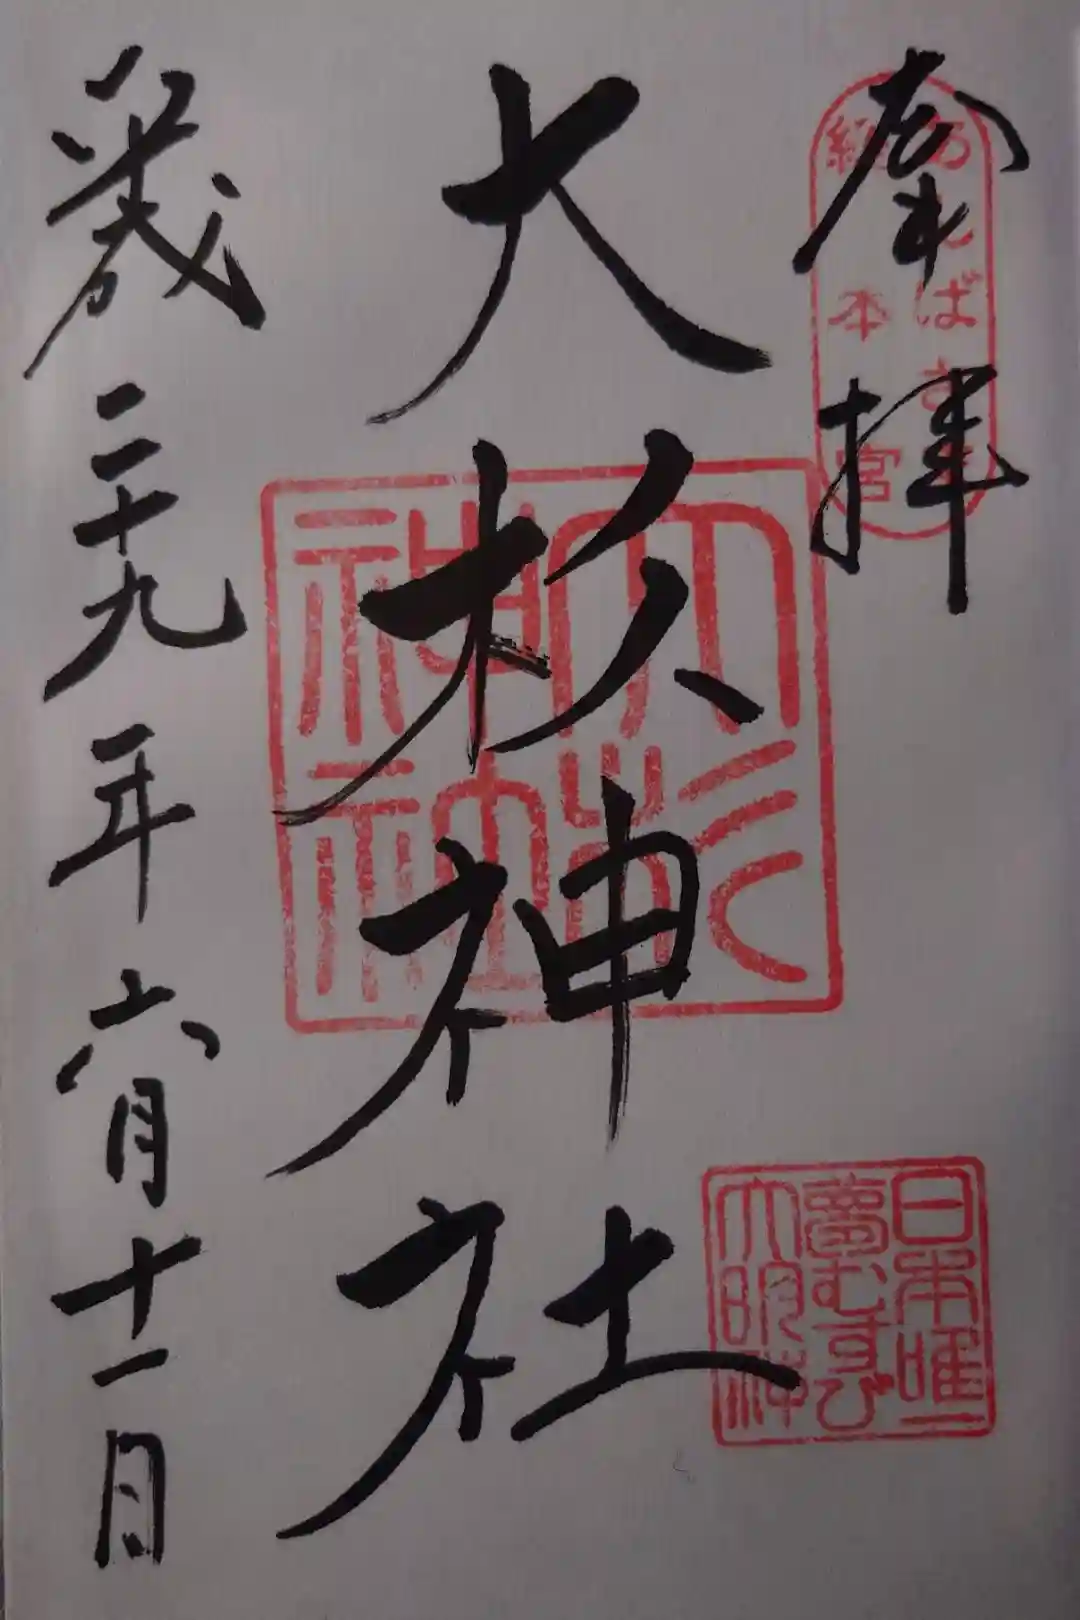 奉拝
あんばさま
総本宮
大杦神社
大杉
神社
日本唯一
夢むすび
大明神
歳二十九年六月十一日